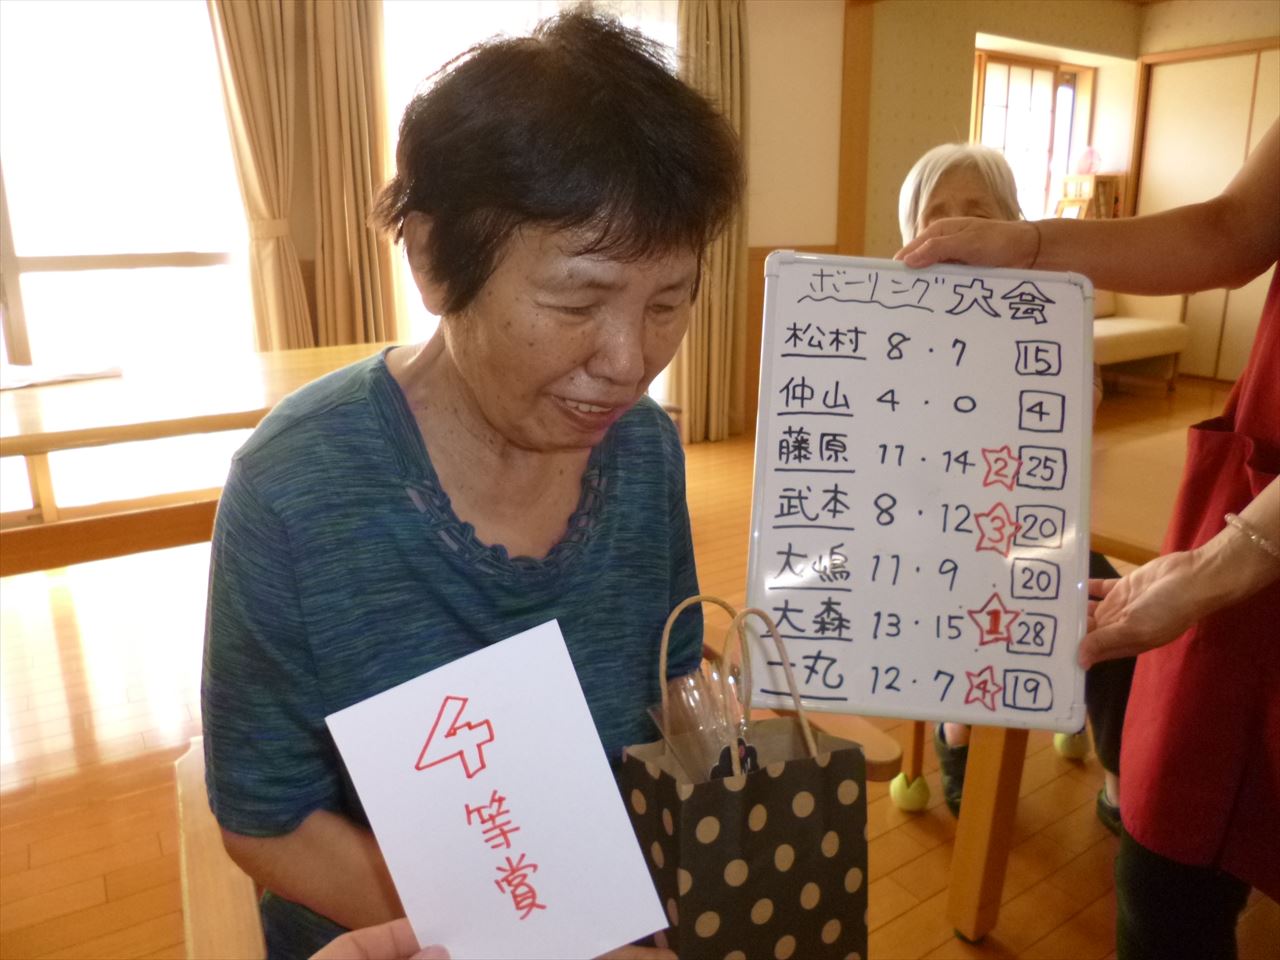 ボーリング大会
松村 8・7 15
仲山 4・0 4
藤原 11・14 2 25
武本 8・12 3 20
大嶋 11・9 20
大森 13・15 1 28
一丸 12・7 4 19
4等賞